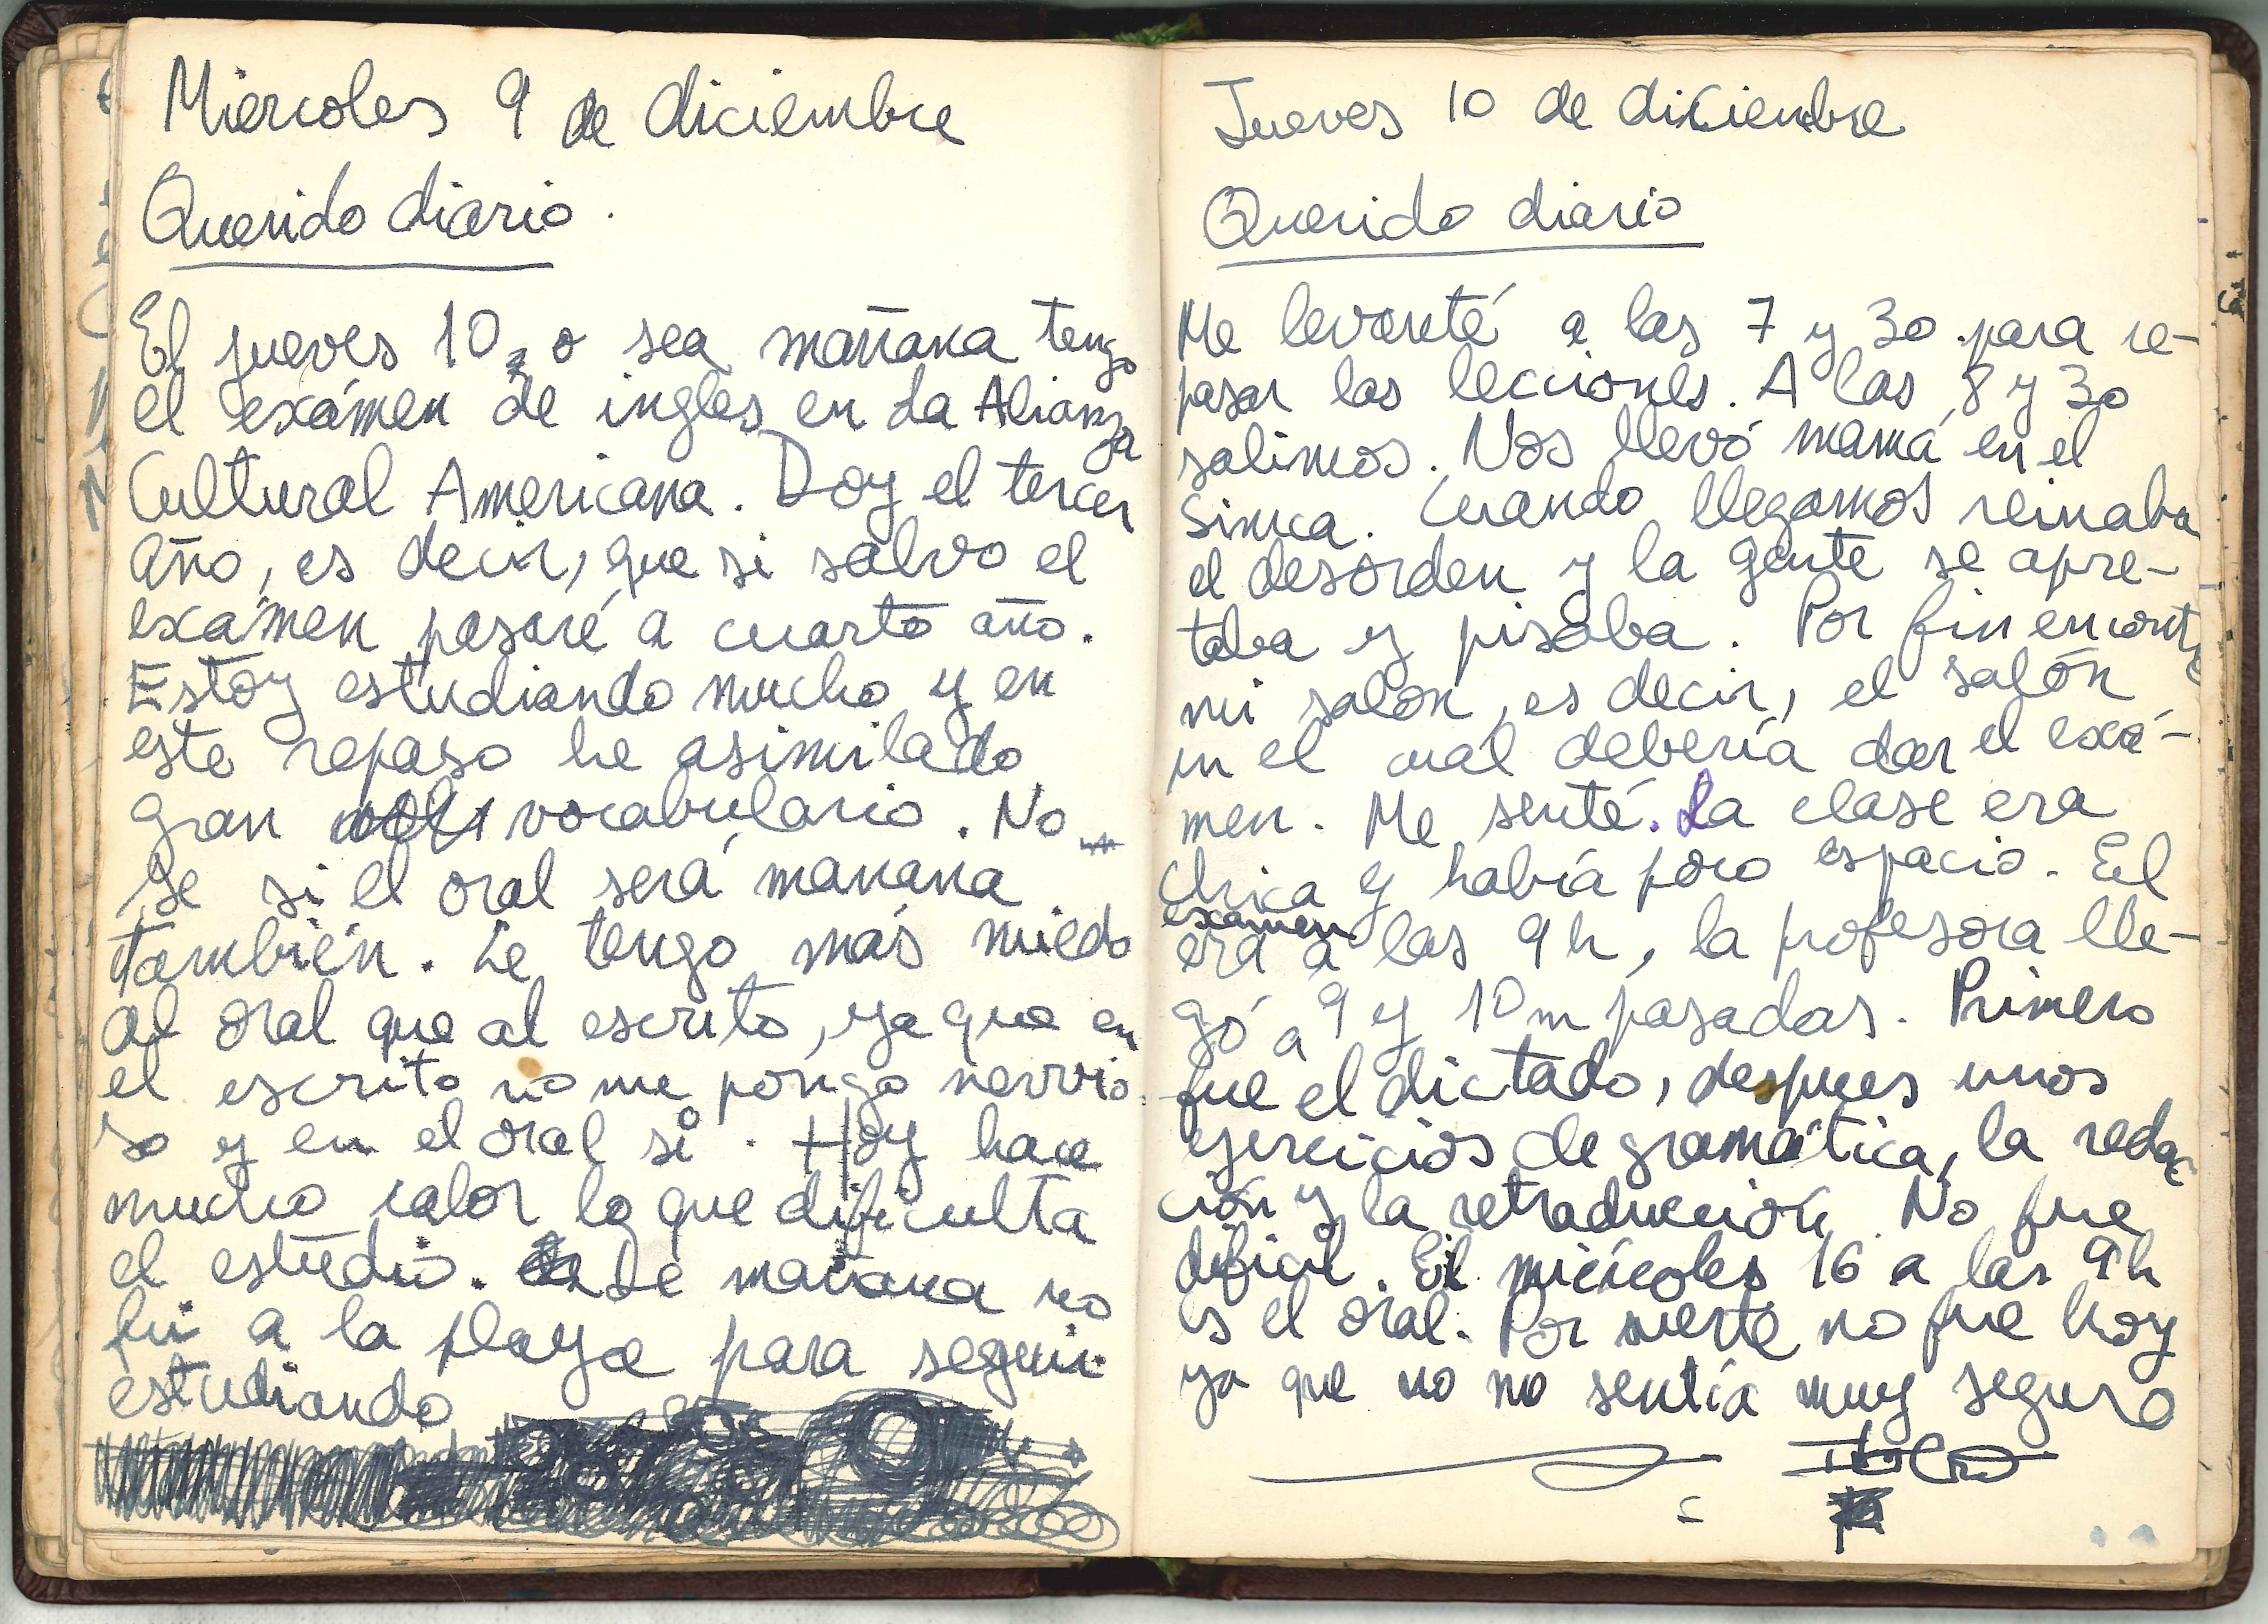 Miércoles 9 de diciembre
Querido diario.
El jueves 10, o sea mañana tengo
el exámen de ingles en La Alianza
Cultural Americana. Doy el tercer
año, es decir, que si salvo el
exámen pasaré a cuarto año.
Estoy estudiando mucho y en
este repaso he asimilado
gran vocabulario. No
se si el oral será manana
también. Le tengo más miedo
al oral que al escrito, ya que en
el escrito no me pongo nervio-
so y en el oral si. Hoy hace
mucho calor lo que dificulta
el estudio. De mañana no
fui a la playa para seguir
estudiando
Jueves 10 de diciembre
Querido diario
Me levanté a las 7 y 30 para re-
pasar las lecciones. A las 8 y 30
salimos. Nos llevó mamá en el
Simca. Cuando llegamos reinaba
el desorden y la gente se apre-
taba y pisaba. Por fin encontré
mi salón, es decir, el salón
en el cual debería dar el exá-
men. Me senté. La clase era
chica y había poco espacio. El
examen
era a las 9 h, la profesora lle-
gó a 9 y 10 m pasadas. Primero
fue el dictado, despues unos
ejercicios de gramática, la redac-
ción y la retraducción. No fue
dificil. El miércoles 16 a las 9 h
es el oral. Por suerte no fue hoy
ya que no no sentía muy seguro